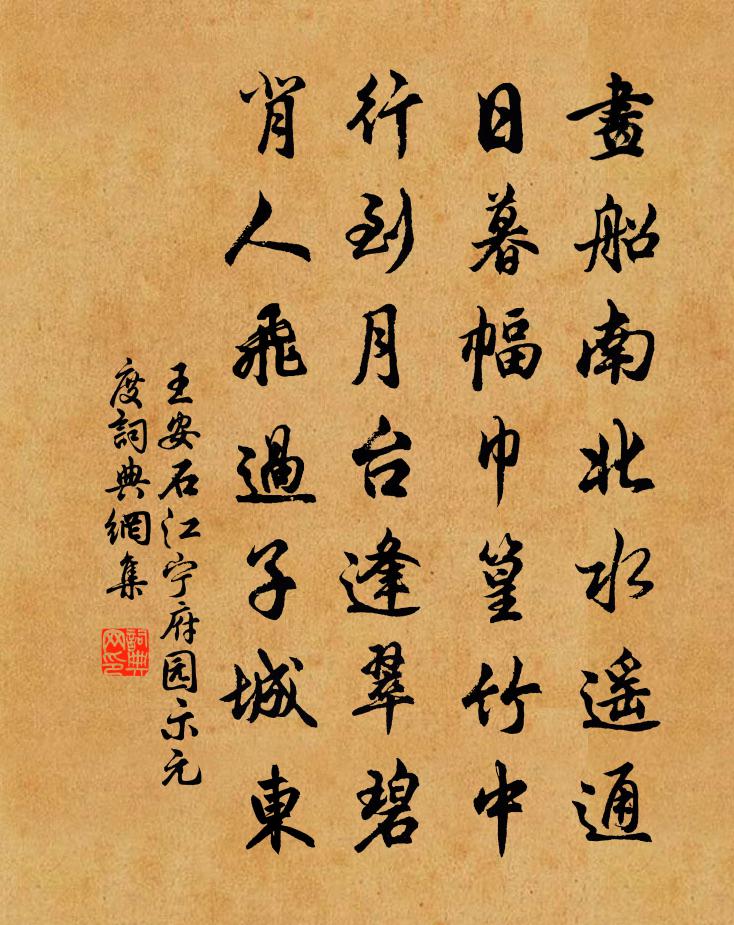 畫船南北水遥通
日暮幅巾篁竹中
行到月台逢翠碧
背人飛過子城東
王安石江宁府园示元
度詞典網集
詞典网印